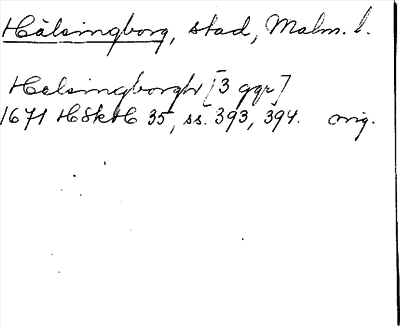 Hälsingborg, stad, Malm. l.
Helsingborgh [3 ggr]
1671 HSkH 35, ss. 393, 394. orig.